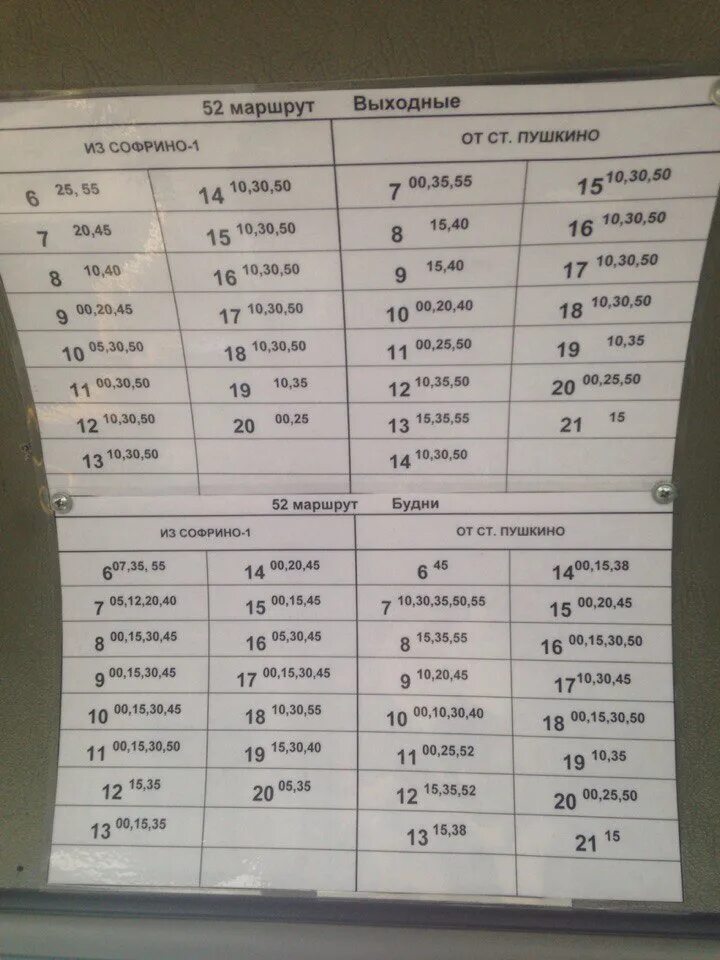 52 маршрут Выходные
ИЗ СОФРИНО-1 ОТ СТ. ПУШКИНО
6 25, 55 14 10,30,50 7 00,35,55 15 10,30,50
7 20,45 15 10,30,50 8 15,40 16 10,30,50
8 10,40 16 10,30,50 9 15,40 17 10,30,50
9 00,20,45 17 10,30,50 10 00,20,40 18 10,30,50
10 05,30,50 18 10,30,50 11 00,25,50 19 10,35
11 00,30,50 19 10,35 12 10,35,50 20 00,25,50
12 10,30,50 20 00,25 13 15,35,55 21 15
13 10,30,50 14 10,30,50
52 маршрут Будни
ИЗ СОФРИНО-1 ОТ СТ. ПУШКИНО
6 07,35, 55 14 00,20,45 6 45 14 00,15,38
7 05,12,20,40 15 00,15,45 7 10,30,35,50,55 15 00,20,45
8 00,15,30,45 16 05,30,45 8 15,35,55 16 00,15,30,50
9 00,15,30,45 17 00,15,30,45 9 10,20,45 17 10,30,45
10 00,15,30,45 18 10,30,55 10 00,10,30,40 18 00,15,30,50
11 00,15,30,50 19 15,30,40 11 00,25,52 19 10,35
12 15,35 20 05,35 12 15,35,52 20 00,25,50
13 00,15,35 13 15,38 21 15